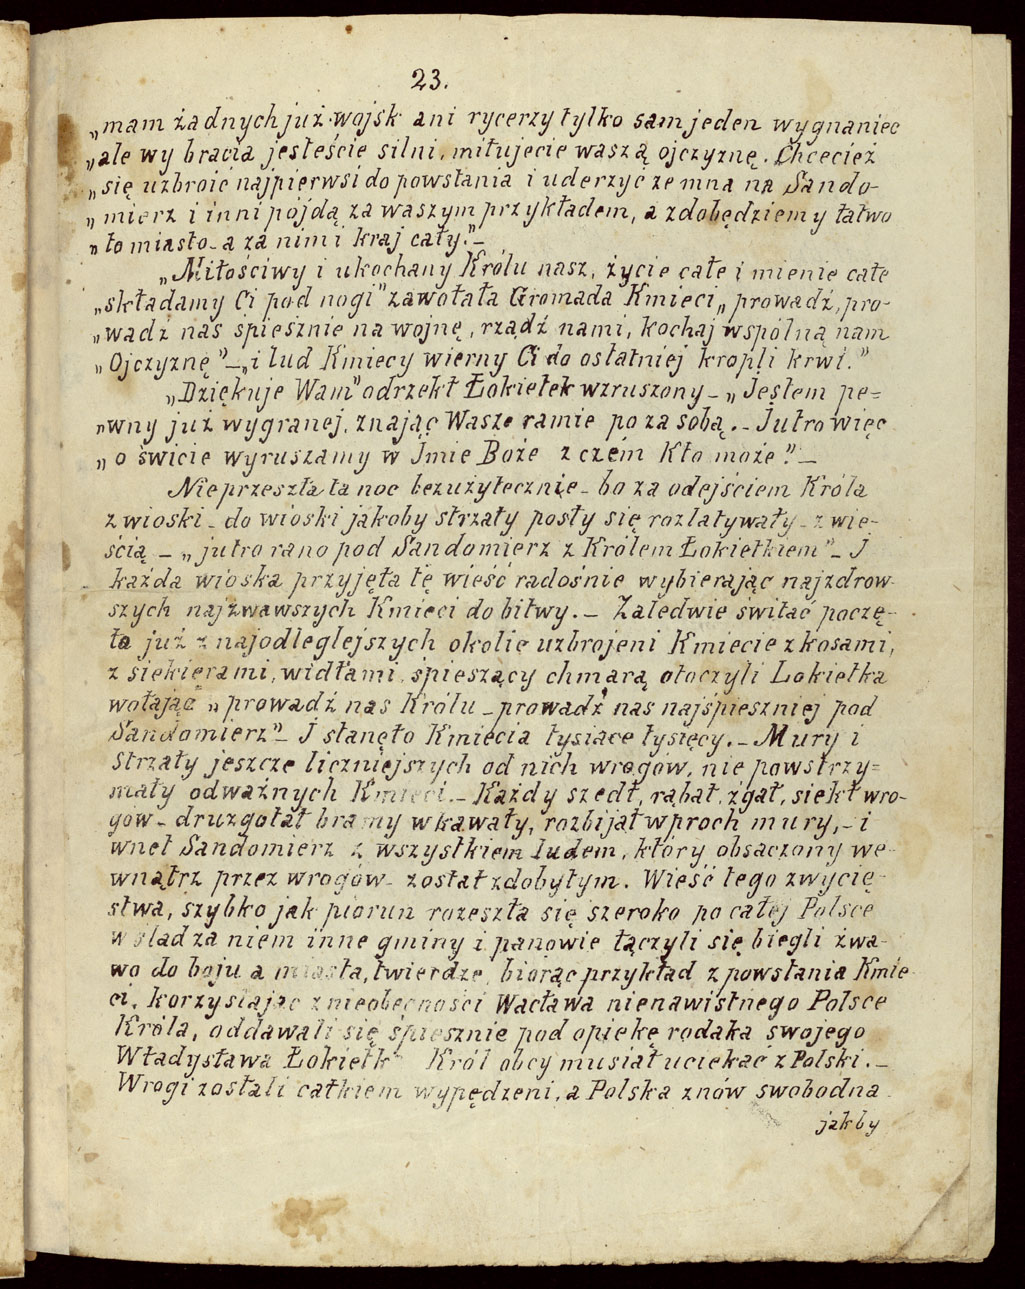 23.
„mam żadnych już wojsk ani rycerzy tylko sam jeden wygnaniec
„ale wy bracia jesteście silni, miłujecie waszą ojczyznę. Chcecież
„się uzbroić najpierwsi do powstania i uderzyć ze mną na Sando-
„mierz i inni pójdą za waszym przykładem, a zdobędziemy łatwo
„to miasto - a za nim i kraj cały." -
„Miłościwy i ukochany Królu nasz, życie całe i mienie całe
„składamy Ci pod nogi" zawołała Gromada Kmieci „prowadź, pro-
„wadź nas śpiesznie na wojnę, rządź nami, kochaj wspólną nam
„Ojczyznę" - „i lud Kmiecy wierny Ci do ostatniej kropli krwi."
„Dziękuje Wam" odrzekł Łokietek wzruszony - „Jestem pe=
„wny już wygranej, znając Wasze ramie poza sobą. - Jutro więc
„o świcie wyruszamy w Jmie Boże z czém Kto może". -
Nie przeszła ta noc bezużytecznie - bo za odejściem Króla
z wioski - do wioski jakoby strzały posły się rozlatywały - z wie-
ścią - „jutro rano pod Sandomierz z Królem Łokietkiem" - J
każda wioska przyjęta tę wieść radośnie wybierając najzdrow-
szych najżwawszych Kmieci do bitwy. - Zaledwie świtać poczę-
ła już z najodleglejszych okolic uzbrojeni Kmiecie z kosami,
z siekierami, widłami, śpieszący chmarą otoczyli Lokietka
wołając „prowadź nas Królu - prowadź nas najśpieszniej pod
Sandomierz" - J stanęło Kmiecia tysiące tysięcy. - Mury i
strzały jeszcze liczniejszych od nich wrogów, nie powstrzy=
mały odważnych Kmieci. - Każdy szedł, rąbał, żgał, siekł wro-
gów - druzgotał bramy w kawały, rozbijał w proch mury, - i
wnet Sandomierz z wszystkiem ludem, który obsaczony we-
wnątrz przez wrogów - został zdobytym. Wieść tego zwycię-
stwa, szybko jak piorun rozeszła się szeroko po całej Polsce
w ślad za niem inne gminy i panowie łączyli się biegli żwa-
wo do boju a miasta, twierdze, biorąc przykład z powstania Kmie-
ci, korzystając z nieobecności Wacława nienawistnego Polsce
Króla, oddawali się śpiesznie pod opiekę rodaka swojego
Władysława Łokietk Król obcy musiał uciekać z Polski. -
Wrogi zostali całkiem wypędzeni, a Polska znów swobodna
jakby